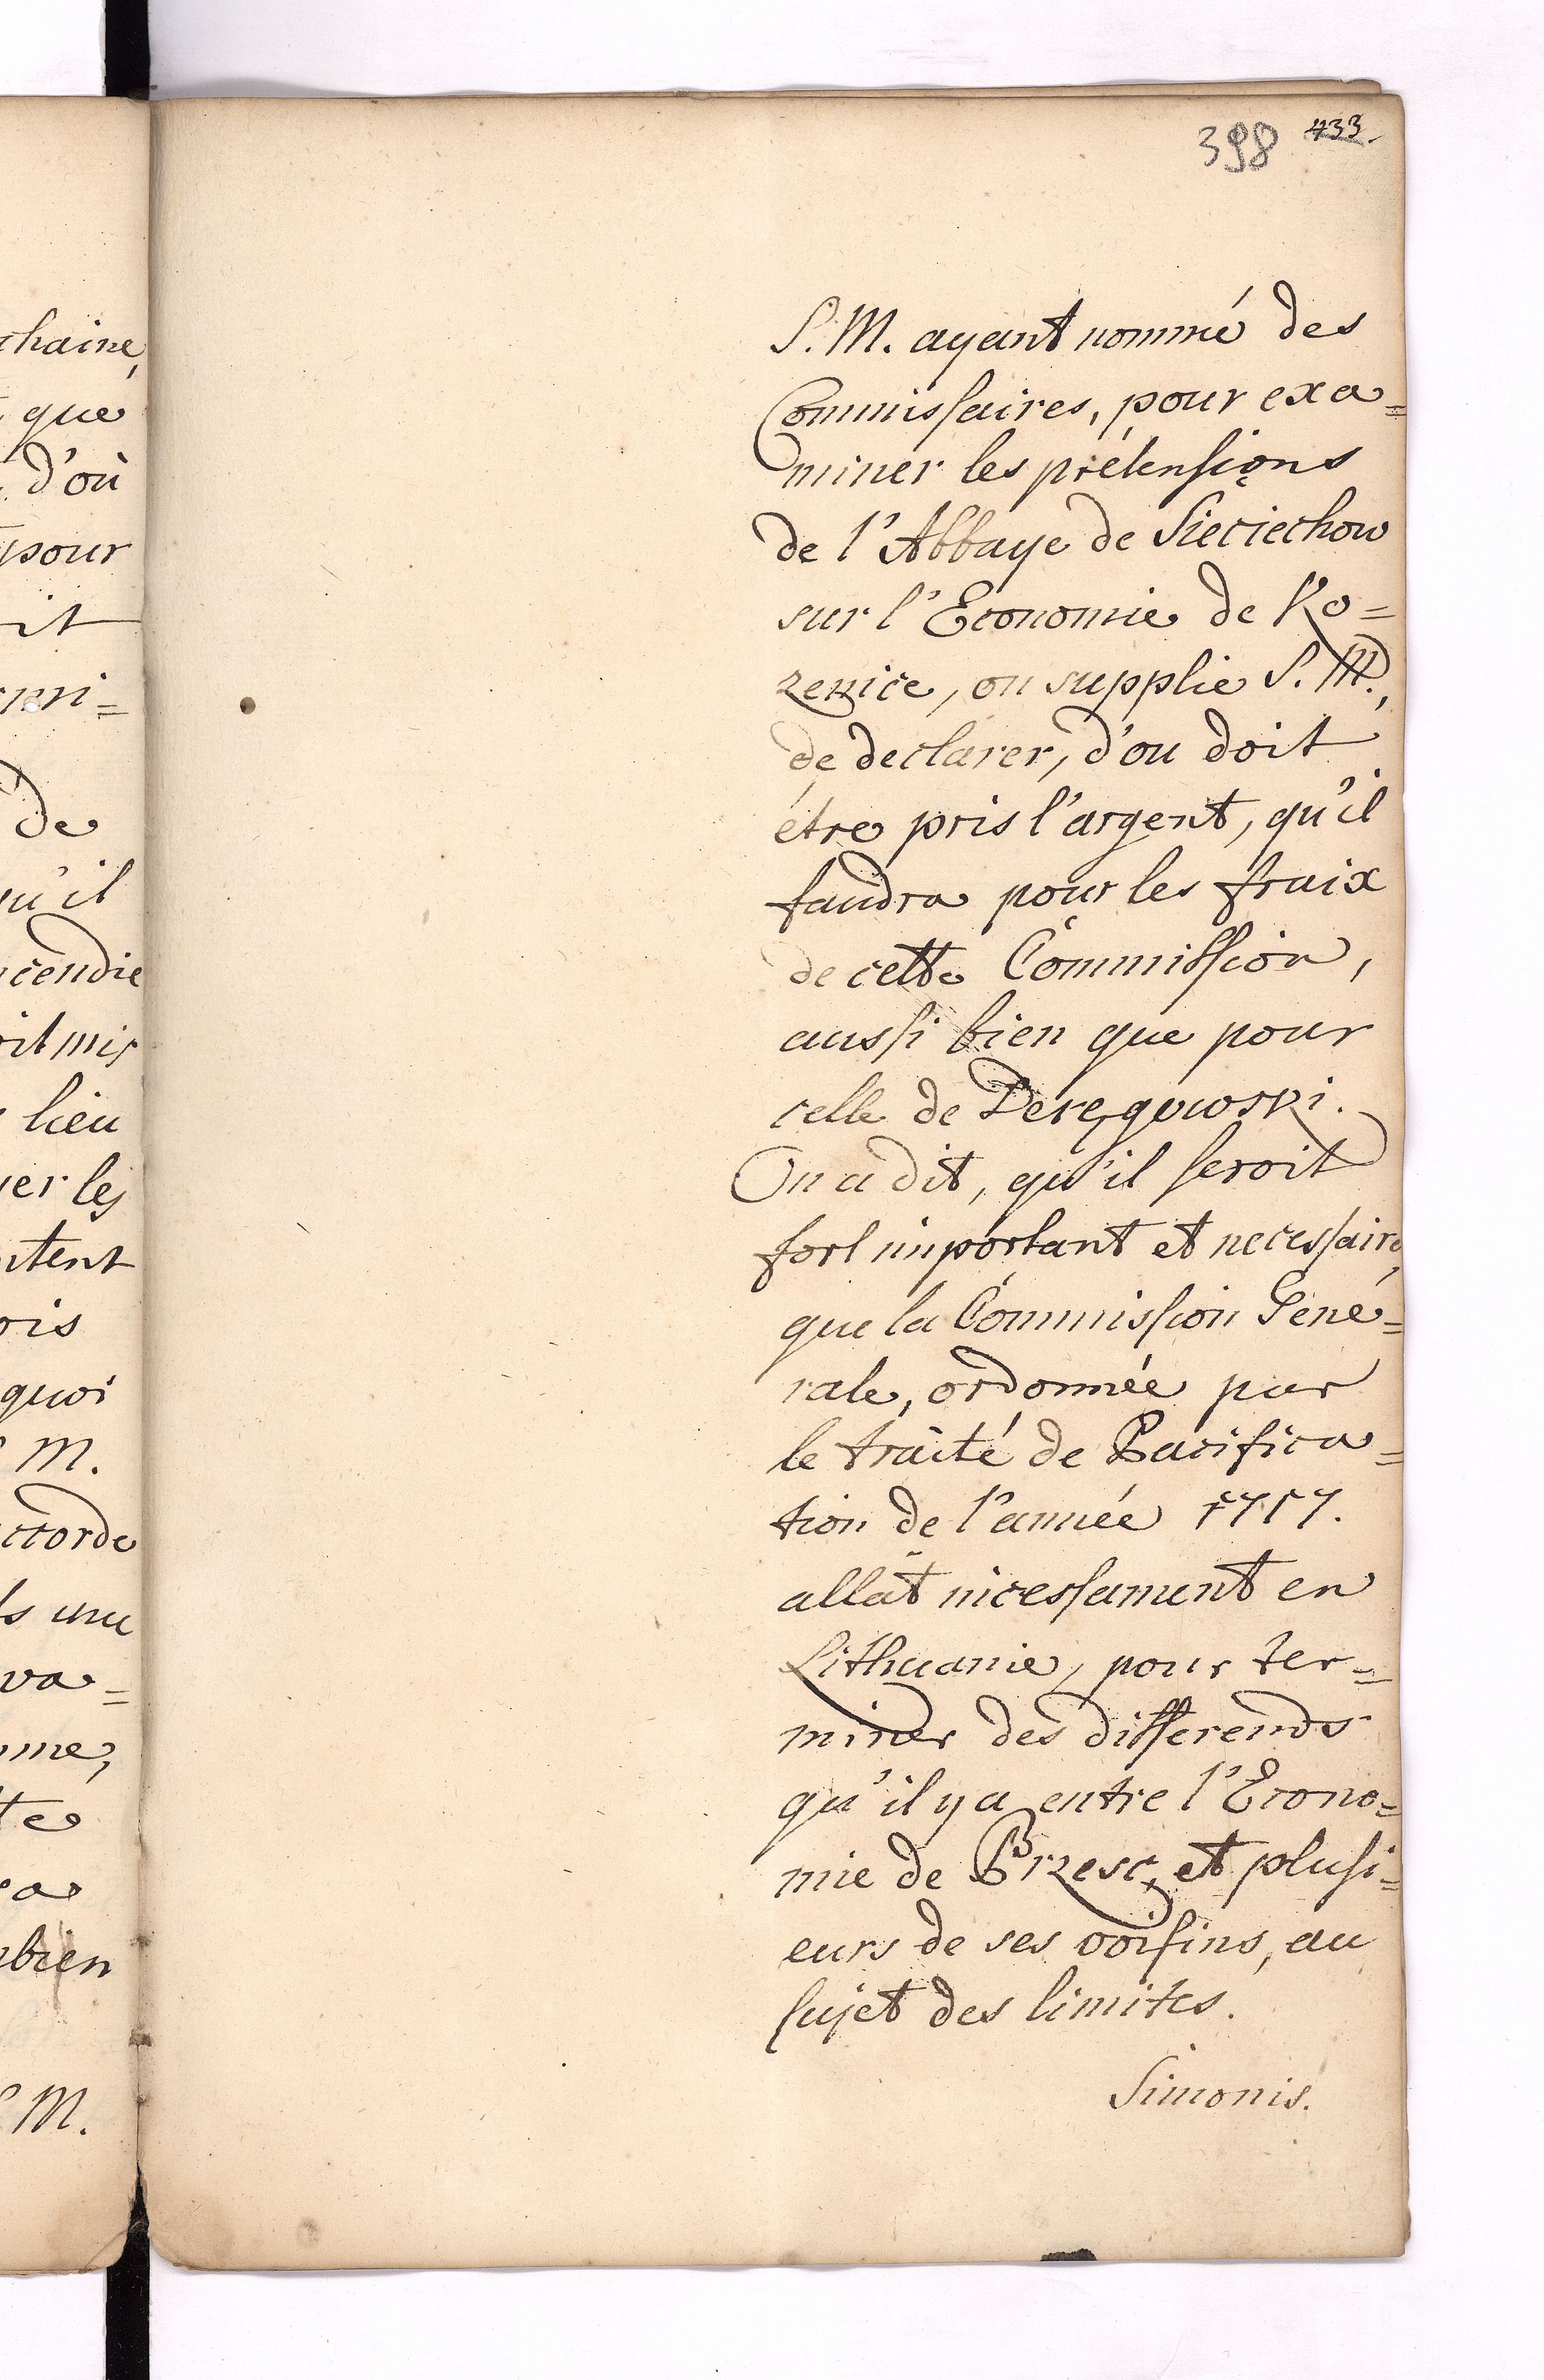 398 433.
S. M. ayant nommé des
Commissaires, pour exa=
miner les prétensions
de l'Abbaye de Sieciechow
sur l'Economie de Ko=
zenice, on supplie S. M.,
de declarer, d'ou doit
étre pris l'argent, qu'il
faudra pour les fraix
de cette Commission,
aussi bien que pour
celle de
On a dit, qu'il seroit
fort important et necessaire,
que la Commission Gené=
rale, ordonnée par
le traité de Pacifica=
tion de l'année 1717.
allât incessament en
Lithuanie, pour ter=
miner des differends
qu'il y a entre l'Econo=
mie de Brzesc, et plusi=
eurs de ses voisins, au
sujet des limites.
Simonis.
chaine,
que
d'où
pour
it
de
qu'il
cendie
oit mis
lieu
uer les
ntent
ois
quoi
M.
ccorde
va=
me,
te
bien
M.